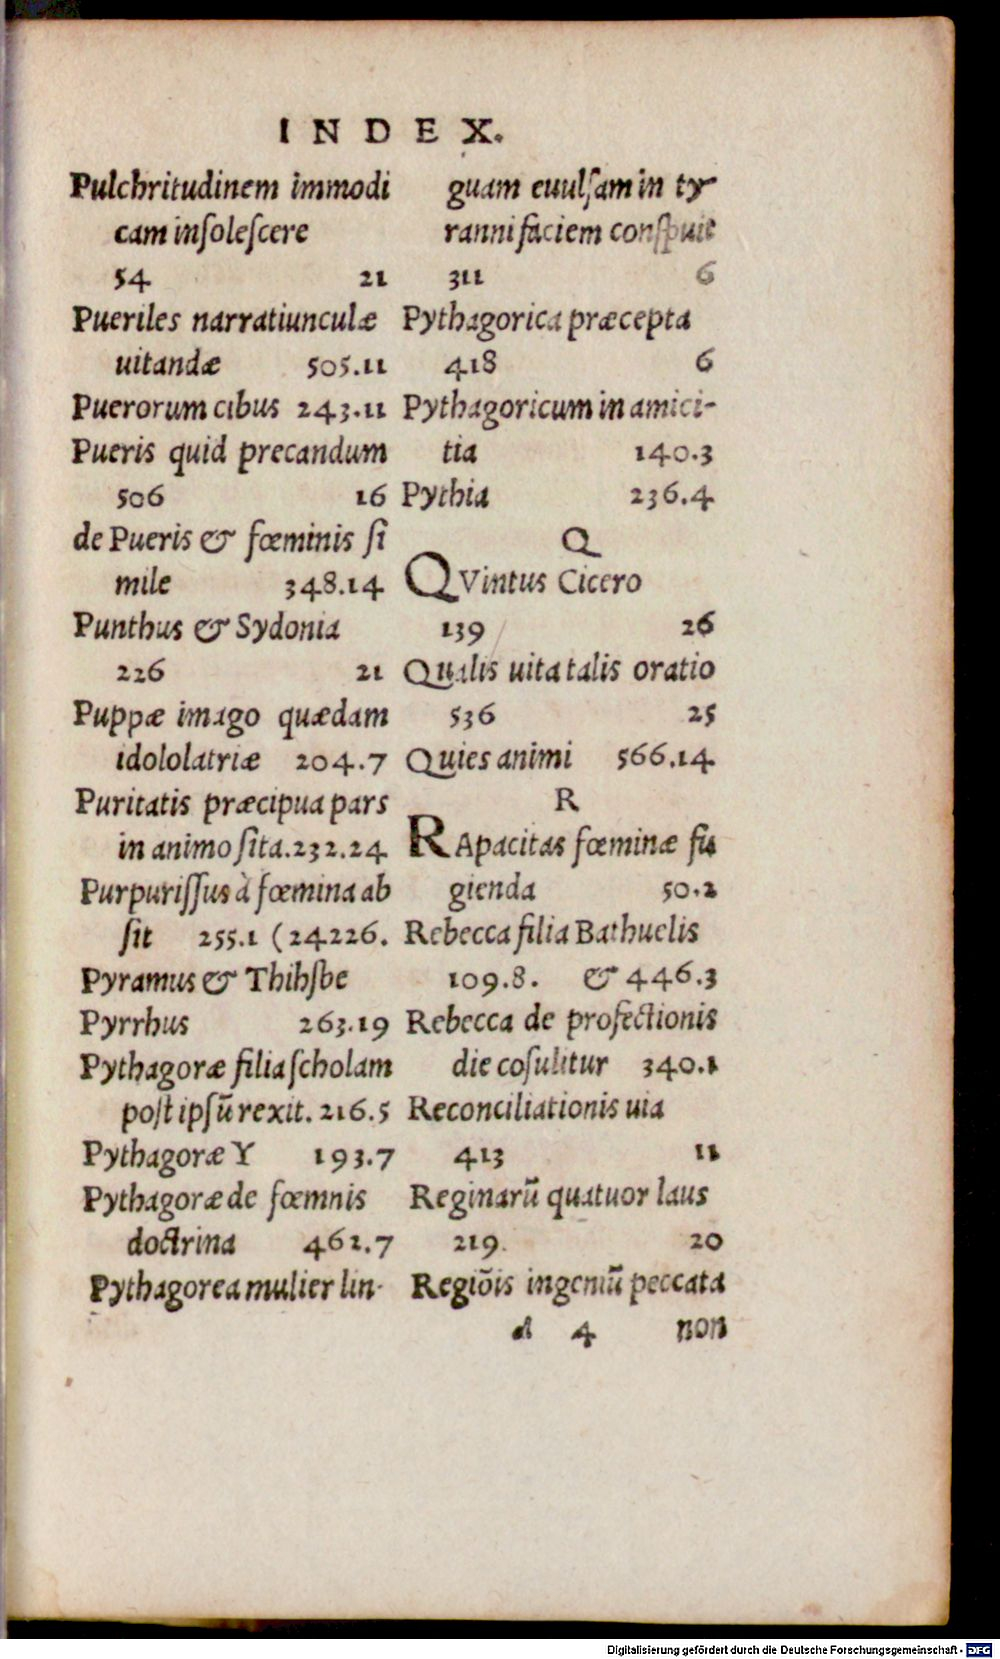 INDEX.
Pulchritudinem immodi
cam insolescere
54 21
Pueriles narratiunculæ
uitandæ 505.11
Puerorum cibus 243.11
Pueris quid precandum
506 16
de Pueris & fœminis si
mile 348.14
Punthus & Sydonia
226 21
Puppæ imago quædam
idololatriæ 204.7
Puritatis præcipua pars
in animo sita.232.24
Purpurissus à fœmina ab
sit 255.1 (24226.
Pyramus & Thihsbe
Pyrrhus 263.19
Pythagoræ filia scholam
post ipsū rexit. 216.5
Pythagoræ Y 193.7
Pythagoræ de fœmnis
doctrina 462.7
Pythagorea mulier lin-
guam euulsam in ty-
ranni faciem conspuit
311 6
Pythagorica præcepta
418 6
Pythagoricum in amici-
tia 140.3
Pythia 236.4
Q
QVintus Cicero
139 26
Qualis uita talis oratio
536 25
Quies animi 566.14
R
RApacitas fœminæ fu
gienda 50.2
Rebecca filia Bathuelis
109.8. & 446.3
Rebecca de profectionis
die cosulitur 340.1
Reconciliationis uia
413 11
Reginarū quatuor laus
219. 20
Regiōis ingeniū peccata
d 4 non
Digitalisierung gefördert durch die Deutsche Forschungsgemeinschaft - DFG